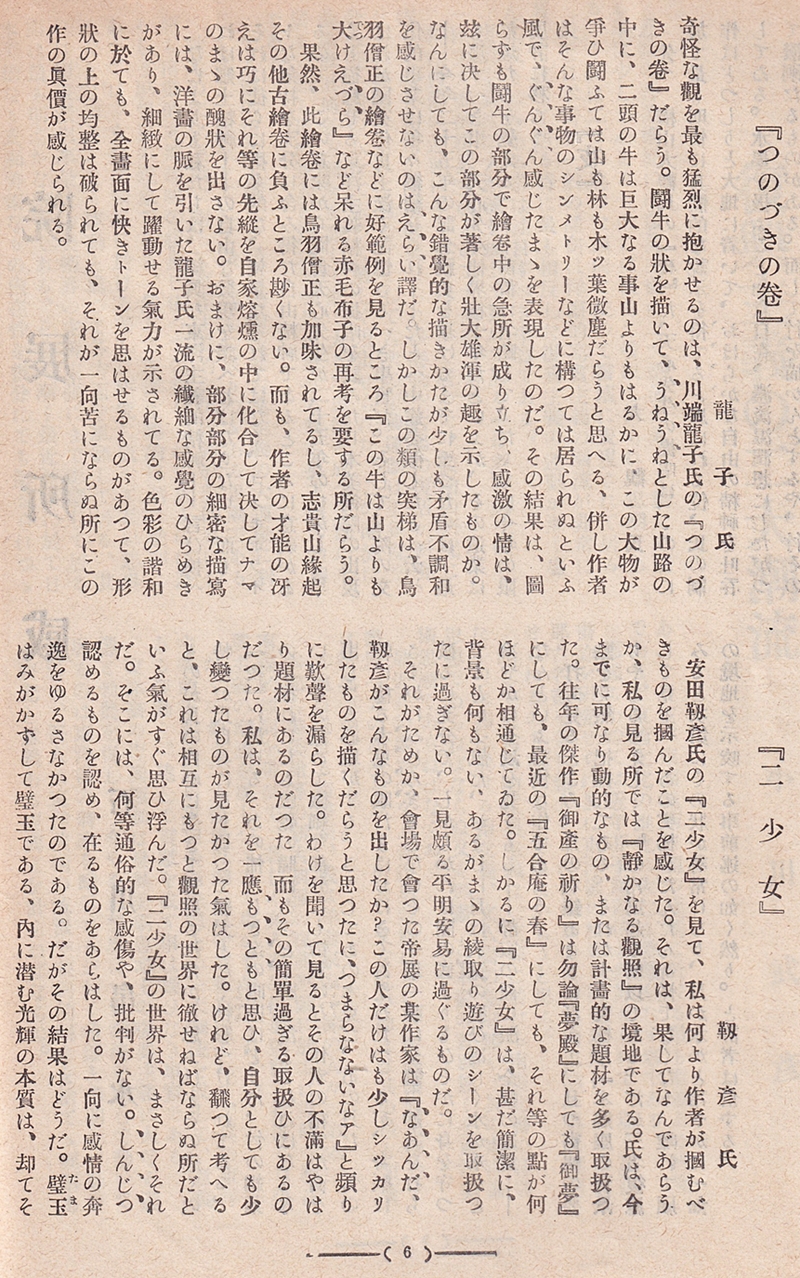 『つのづきの卷』
龍子氏
奇怪な觀を最も猛烈に抱かせるのは、川端龍子氏の『つのづ
きの卷』だらう。鬪牛の狀を描いて、うねうねとした山路の
中に、二頭の牛は巨大なる事山よりもはるかに、この大物が
爭ひ鬪ふては山も林も木ッ葉微塵だらうと思へる、併し作者
はそんな事物のシンメトリーなどに構つては居られぬといふ
風で、ぐんぐん感じたまゝを表現したのだ。その結果は、圖
らずも鬪牛の部分で繪卷中の急所が成り立ち、感激の情は、
玆に決してこの部分が著しく壯大雄渾の趣を示したものか。
なんにしても、こんな錯覺的な描きかたが少しも矛盾不調和
を感じさせないのはえらい譯だ。しかしこの類の突梯は、鳥
羽僧正の繪卷などに好範例を見るところ『この牛は山よりも
大けえづら』など呆れる赤毛布子の再考を要する所だらう。
果然、此繪卷には鳥羽僧正も加味されてるし、志貴山緣起
その他古繪卷に負ふところ尠くない。而も、作者の才能の冴
えは巧にそれ等の先縱を自家熔爐の中に化合して決してナマ
のまゝの醜狀を出さない。おまけに、部分部分の細密な描寫
には、洋畫の脈を引いた龍子氏一流の纖細な感覺のひらめき
があり、細緻にして躍動せる氣力が示されてる。色彩の諧和
に於ても、全畫面に快きトーンを思はせるものがあつて、形
狀の上の均整は破られても、それが一向苦にならぬ所にこの
作の眞價が感じられる。
『二少女』
靱彥氏
安田靱彥氏の『二少女』を見て、私は何より作者が摑むべ
きものを摑んだことを感じた。それは、果してなんであらう
か、私の見る所では『靜かなる觀照』の境地である。氏は、今
までに可なり動的なもの、または計畫的な題材を多く取扱つ
た。往年の傑作『御產の祈り』は勿論『夢殿』にしても『御夢』
にしても、最近の『五合庵の春』にしても、それ等の點が何
ほどか相通じてゐた。しかるに『二少女』は、甚だ簡潔に、
背景も何もない、あるがまゝの綾取り遊びのシーンを取扱つ
たに過ぎない。一見頗る平明安易に過ぐるものだ。
それがためか、會場で會つた帝展の某作家は『なあんだ、
靱彥がこんなものを出したか?この人だけはも少しシッカリ
したものを描くだらうと思つたに、つまらなないなァ』と頻り
に歎聲を漏らした。わけを聞いて見るとその人の不滿はやは
り題材にあるのだつた 而もその簡單過ぎる取扱ひにあるの
だつた。私は、それを一應もつともと思ひ、自分としても少
し變つたものが見たかつた氣はした。けれど、飜つて考へる
と、これは相互にもつと觀照の世界に徹せねばならぬ所だと
いふ氣がすぐ思ひ浮んだ。『二少女』の世界は、まさしくそれ
だ。そこには、何等通俗的な感傷や、批判がない。しんじつ
認めるものを認め、在るものをあらはした。一向に感情の奔
逸をゆるさなかつたのである。だがその結果はどうだ。璧玉
はみがかずして璧玉である、內に潜む光輝の本質は、却てそ
( 6 )